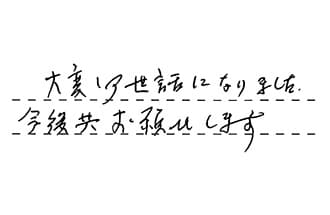 大変お世話になりました.
今後共お願いします